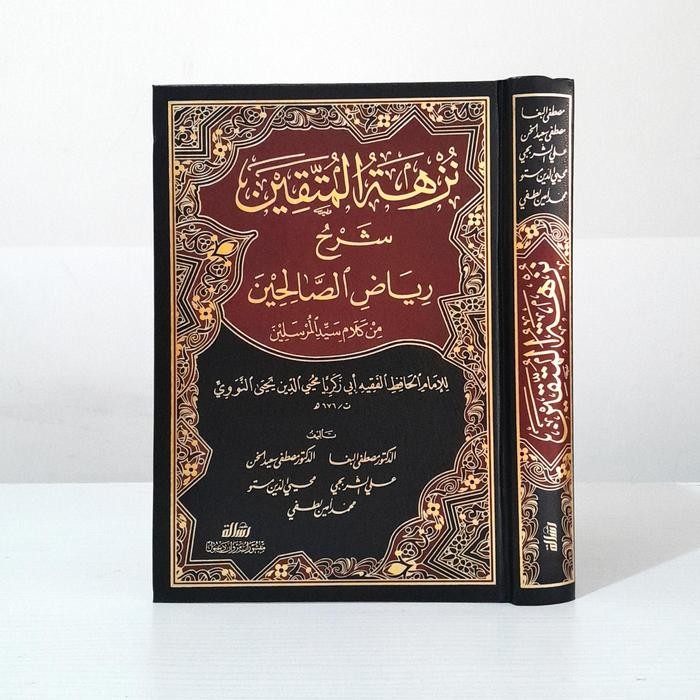 نُزْهَةُ المُتَّقِينَ
شَرْحُ
رِيَاضِ الصَّالِحِيْنَ
مِنْ كَلَامِ سَيِّدِ المُرْسَلِيْنَ
لِلإِمَامِ الحَافِظِ الفَقِيهِ أَبي زَكَرِيَّا مُحْيِي الدِّين يَحْيَى النَّوَوِيّ
ت/٦٧٦ هـ
تأليف
الدكتور مصطفى البغا الدكتور مصطفى سعيد الخن
علي الشربجي محيي الدين مستو
محمد أمين لطفي
رسالة
مصطفى البغا
مصطفى سعيد الخن
علي الشربجي
محيي الدين مستو
محمد أمين لطفي
نُزْهَةُ المُتَّقِينَ
رسالة